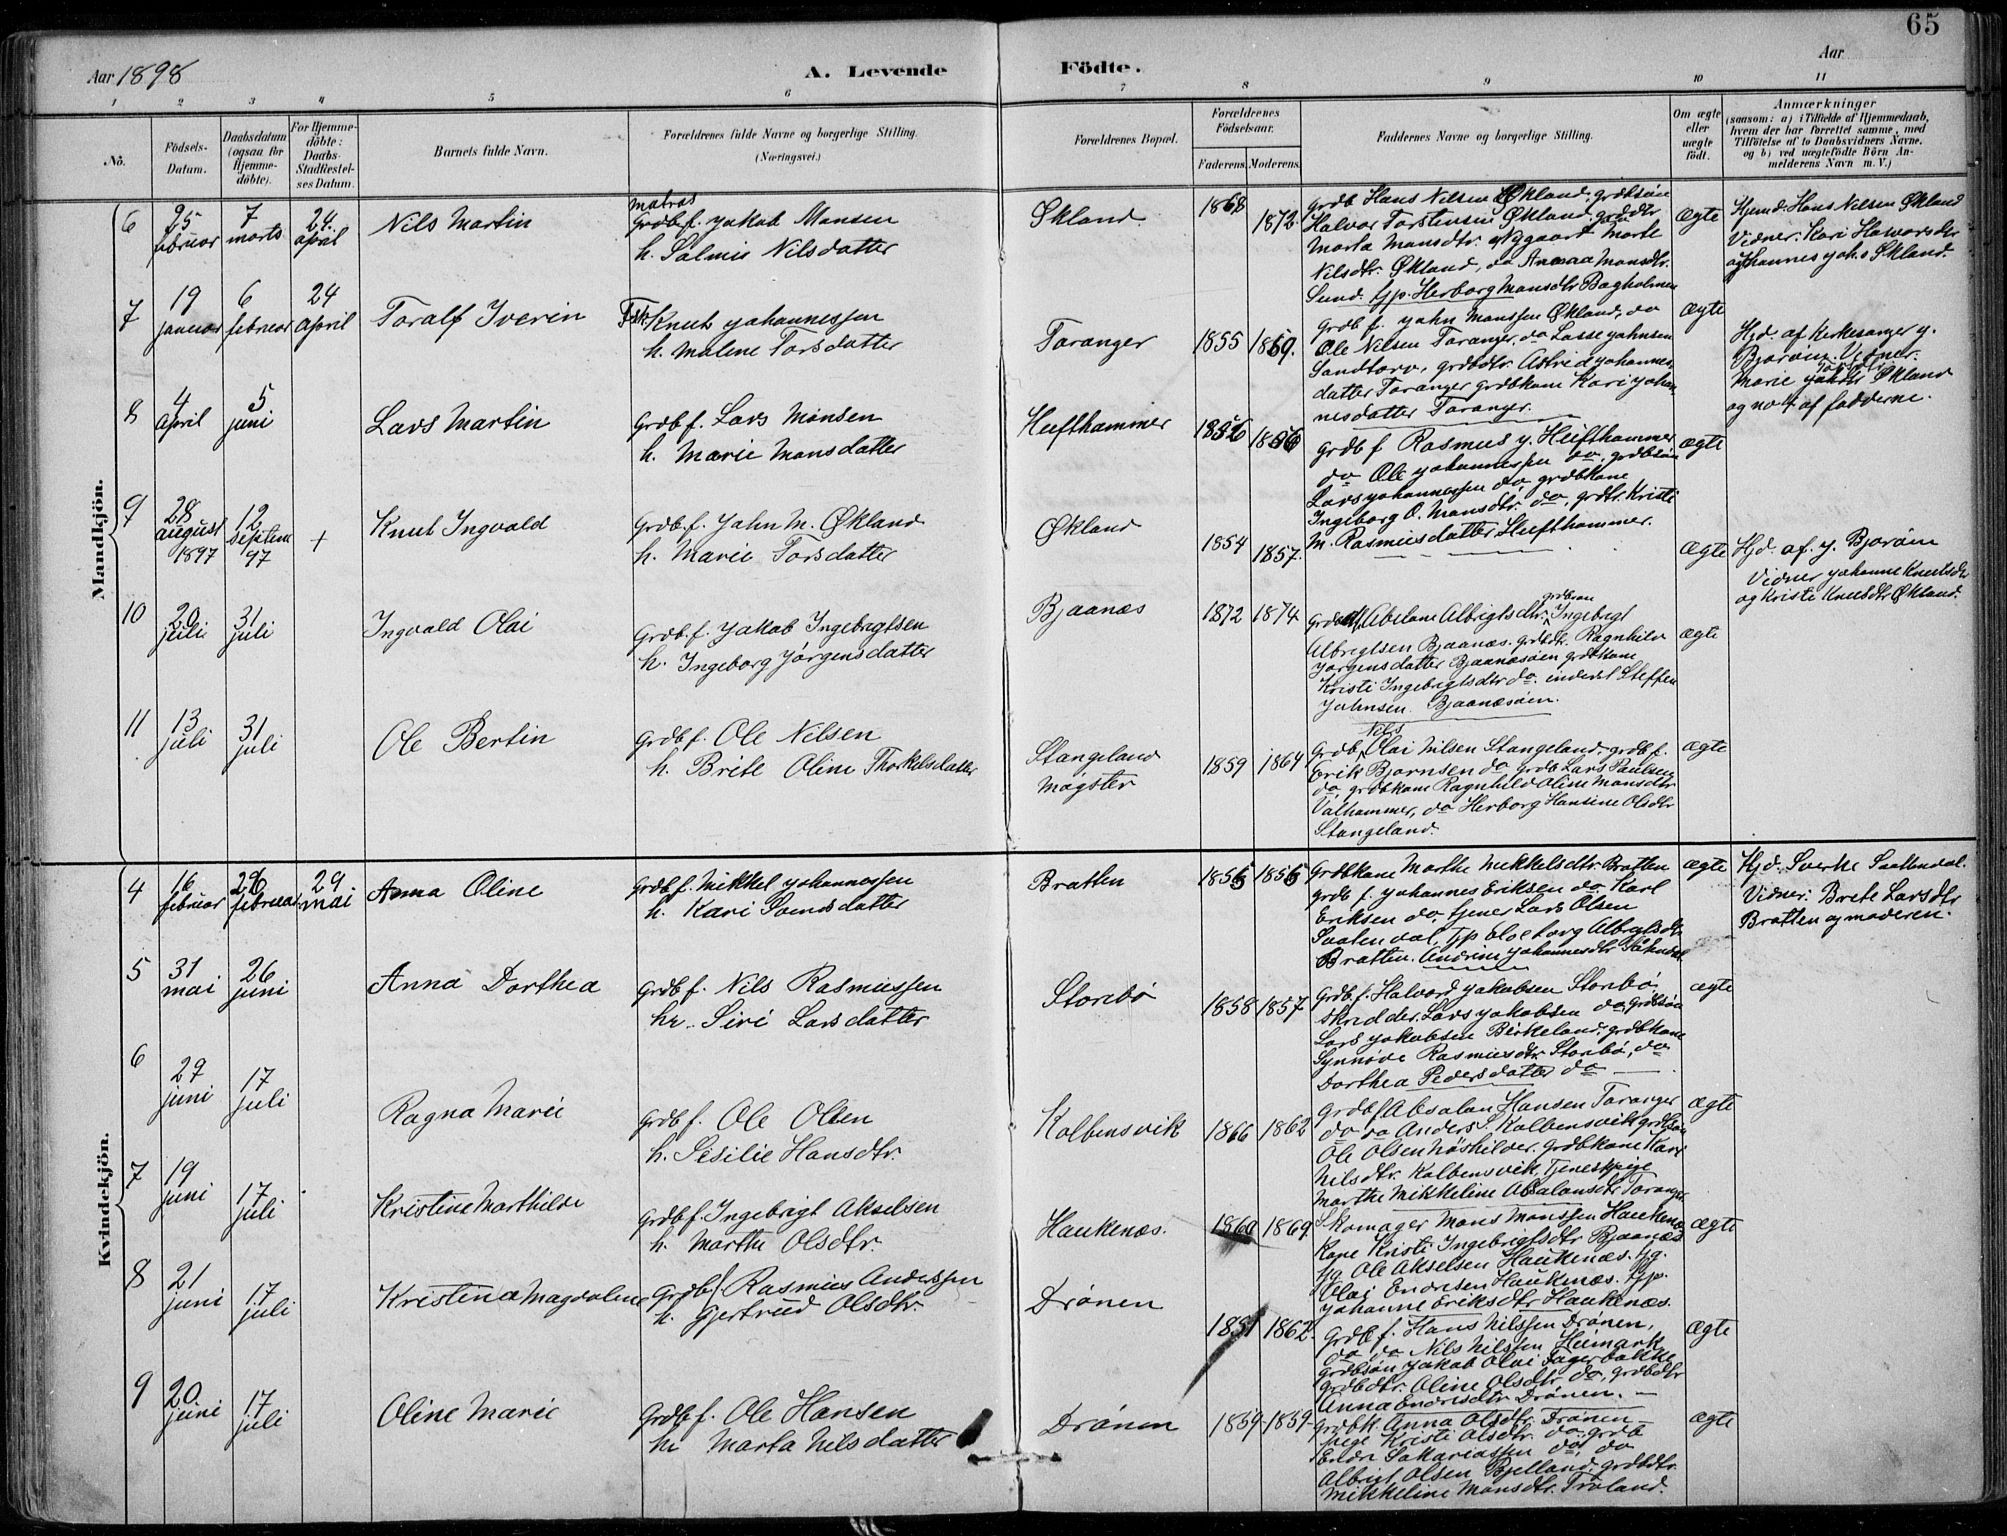 65
Aar 1898
A. Levende
Födte.
Aar
1 2 3 4 5 6 7 8 9 10 11
No.
Födsels-Datum.
Daabsdatum (ogsaa for Hjemme-döbte).
For Hjemme-döbte: Daabs-Stadfæstel-ses Datum.
Barnets fulde Navn.
Forældrenes fulde Navne og borgerlige Stilling.
(Næringsvei.)
Forældrenes Bopæl.
Forældrenes Födselsaar.
Faderens. Moderens.
Faddernes Navne og borgerlige Stilling.
Om ægte eller uægte födt.
Anmærkninger
(saasom: a) i Tilfælde af Hjemmedaab,
hvem der har forrettet samme, med
Tilföielse af to Daabsvidners Navne,
og b) ved uægtefödte Börn An-
melderens Navn m. V.)
Mandkjön.
6
25 februar
7 marts
24. april
Nils Martin
matros
Grdbf. Jakob Monsen
h. Salmie Nilsdatter
Økland
1868
1872
grdb Hans Nilsen Økland, grdbsön
Halvor Torstensen Økland, grdbdtr
Marta Monsdtr. Nygaard Marte
Nilsdtr. Økland, do Anna Monsdtr.
Sund. Gp. Herborg Monsdtr Bagholmen
Ægte
Hjemd. Hans Nilsen Økland
Vidner: Kari Halvorsdtr
og Johannes Johs Økland.
7
19 januar
6 februar
24 april
Toralf Iverin
Fsk. Knut Johannessen
h. Malene Torsdatter
Taranger
1855 1869.
Grdb.f. John Monssen Økland, do
Ole Nilsen Taranger, do Lasse Johnsen
Sandtorv, grdbdtr. Astrid Johannes-
datter Taranger grdbkone Kari Johan-
nesdatter Taranger.
Ægte
Hjd. af Kirkesanger J.
Bjoröen. Vidner:
Marie Økland
og no 4 af fadderne.
8
4 april
5 juni
Lars Martin
grdbf. Lars Monsen
h. Marie Monsdatter
Hufthammer
1856 1856
grdbf Rasmus J. Hufthammer
do Ole Johannessen do, grdbsön
Lars Johannessen do grdbkone
Ingeborg O. Monsdtr. do, grdtr. Kristi
M. Rasmusdatter Hufthammer.
ægte
9
28 august 1897
12 septem 97
+
Knut Ingvald
grdb.f. John M. Økland
h. Marie Torsdatter
Økland
1854
1857.
Ægte
Hjd. af. J. Bjoröen
Vidner Johanne Knutsdtr
og Kristi Knutsdtr Økland.
10
20 juli
31 juli
Ingvald Olai
grdb.f. Jakob Ingebrigtsen
h. Ingeborg Jörgensdatter
Bjaanæs
1872 1874
grdbsön
Abelone Albrigtsdtr. Ingebrigt
Albrigtsen Bjaanæs. grdbdtr. Ragnhild
Jörgensdatter Bjaanæsöen grdbkone
Kristi Ingebrigtsdtr do. inderst Steffen
Johnsen. Bjaanæsöen.
ægte
11
13 juli
31 juli
Ole Bertin
grdb.f. Ole Nilsen
h. Brite Oline Thorkelsdatter
Stangeland
Møgster
1859 1864
Nils
Grdb, Olai Nilsen Stangeland, grdb.f.
Erik Bjornsen do grdb Lars Paulsen
do, grdbkone Ragnhild Oline Monsdtr
Valhammer, do Herborg Hansine Olsdtr
Stangeland.
ægte
Kvindekjön.
4
16 februar
26 februar
29 mai
Anna Oline
Grdb.f. Mikkel Johannessen
h. Kari Svendsdatter
Bratten
1855 1855
Grdbkone Marthe Mikkelsdtr Bratten
grdb f. Johannes Eriksen do Karl
Eriksen do, tjener Lars Olsen
Saatendal, Gp. Albrigtsdtr.
Bratten. Andrine Johannesdtr
ægte
Hjd. Sverke Saatendal.
Vidner: Brete Larsdtr
Bratten og moderen.
5
31 mai
26 juni
Anna Dorthea
grdb.f. Nils Rasmussen
hr. Siri Larsdatter
Storebö
1858 1857
grdb.f. Halvard Jakobsen Storebö,
skrædder. Lars Jakobsen do, grdbsön
Lars Jakobsen Birkeland, grdbkone
Synnöve Rasmusdtr. Storebö, do
Dorthea Pedersdatter do
ægte
6
29 juni
17 juli
Ragna Marie
grdb f. Ole Olsen
h. Sesilie Hansdtr.
Kolbensvik
1866 1862
grdbf Absalon Hansen Taranger
do do Anders Kolbensvik grdbsön
Ole Olsen Möskelver. grdbkone Kari
Nilsdtr. Kolbensvik, Tjenespige
Marthe Mikkeline Absalonsdtr Taranger
ægte
7
19 juni
17 juli
Kristine Marthilde
Grdbf. Ingebrigt Akselsen
h. Marthe Olsdtr.
Haukenæs.
1860 1869.
Skomager Mons Monssen Haukenæs
Kone Kristi Ingebrigtsdtr Bjaanæs
Ug. Ole Akselsen Haukenæs. Ug.
Olai Endresen Haukenæs. Gp.
Johanne Eriksdtr Haukenæs.
ægte
8
21 juni
17 juli
Kristina Magdalene
Grdb f. Rasmus Anderssen
h. Gjertrud Olsdtr.
Drönen
1851 1862
Grdb.f. Hans Nilssen Drönen,
do do Nils Nilssen Heimark
grdbsön Jakob Olai Fagerbakke
grdbdtr. Oline Olsdtr do, grdbdtr
Anna Endresdtr Drönen.
ægte
9
20 juni
17 juli
Oline Marie
Grdbf. Ole Hansen
h. Marta Nilsdatter
Drönen
1859 - 1859 -
Grdbk. Anna Olsdtr. Drönen
pige Kristi Olsdtr. do, grdb
Endre Sakariassen do, do
Albrigt Olsen Bjelland, grdbdtr
Mikkeline Monsdtr. Fröland.
ægte